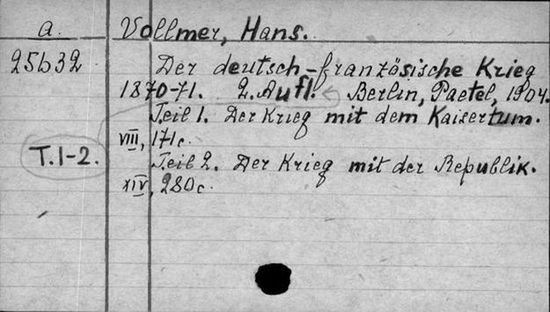 a. Vollmer, Hans.
25b32 Der deutsch-französische Krieg
1870-71. 2. Aufl. Berlin, Paetel, 1904.
Teil 1. Der Krieg mit dem Kaisertum.
VIII, 171c.
T.1-2.
Teil 2. Der Krieg mit der Republik.
XIV, 280c.